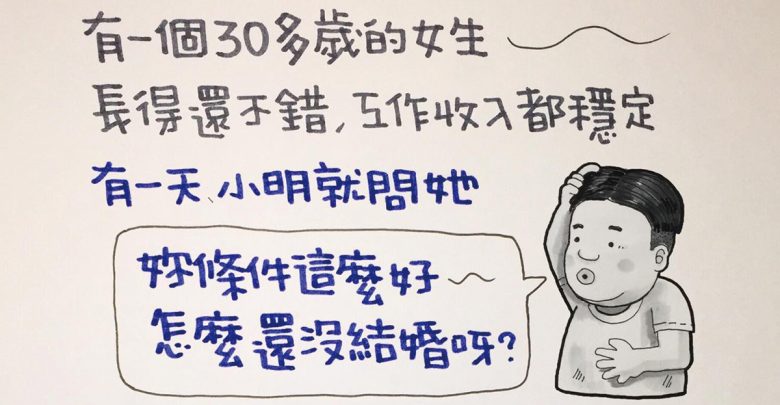 有一個30多歲的女生～
長得還不錯，工作收入都穩定
有一天、小明就問她
妳條件這麼好～
怎麼還沒結婚呀？